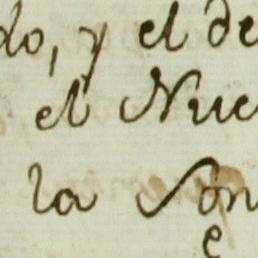 do, y el de
el Nue
la Son
e